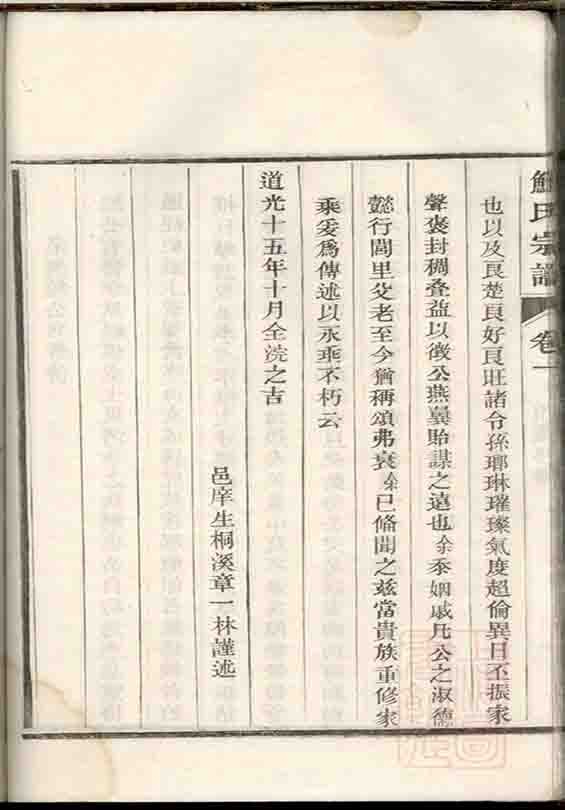 鮑氏宗譜 卷一
也以及良楚良好良旺諸令孫瑯琳璀璨氣度超倫異日丕振家
聲褒封稠叠益以徵公燕翼貽謀之遠也余忝姻戚凡公之淑德
懿行閭里父老至今猶稱頌弗衰余已俻聞之兹當貴族重修家
乘爰為傳述以永垂不朽云
道光十五年十月全浣之吉
邑庠生桐溪章一林謹述